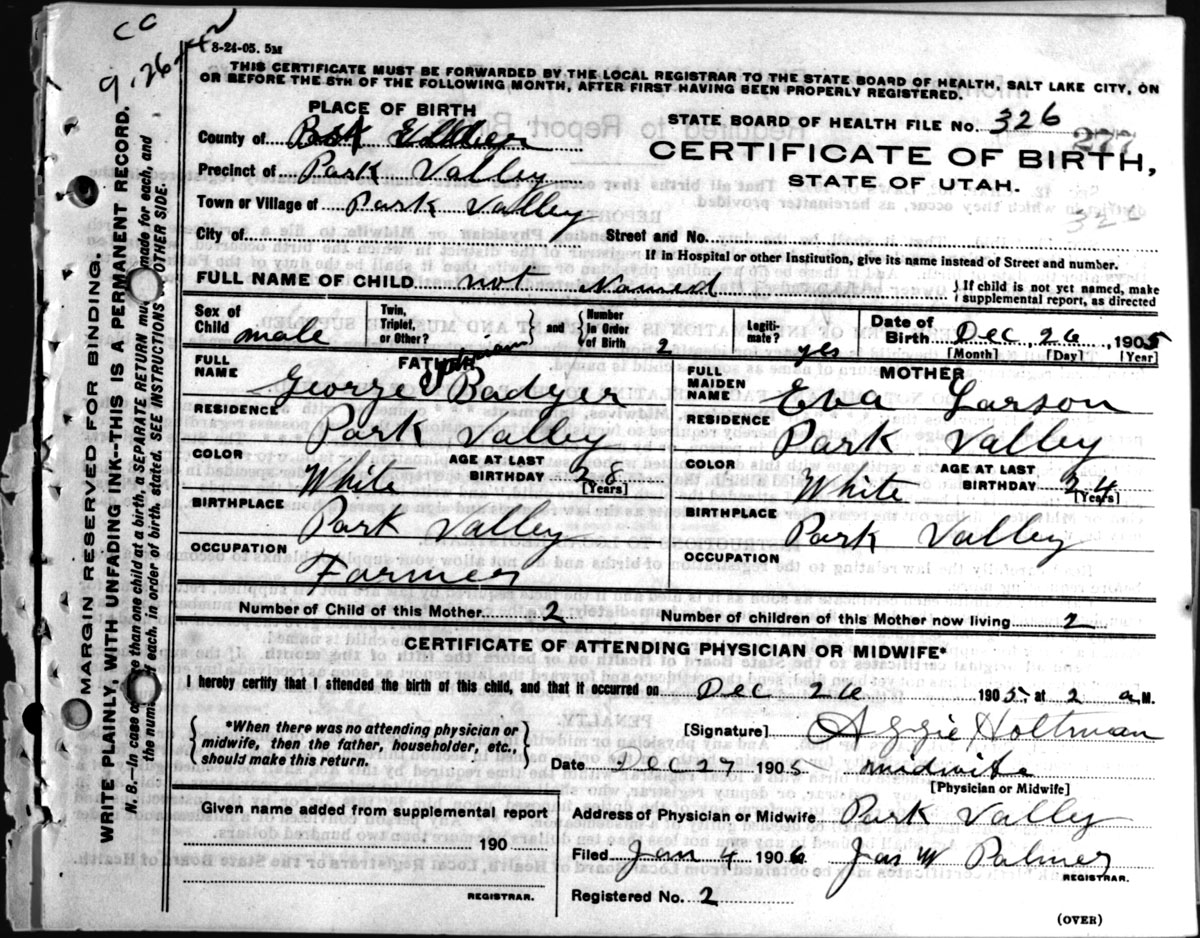 CC
9-26-42
8-24-05. 5M
THIS CERTIFICATE MUST BE FORWARDED BY THE LOCAL REGISTRAR TO THE STATE BOARD OF HEALTH, SALT LAKE CITY, ON
OR BEFORE THE 5TH OF THE FOLLOWING MONTH, AFTER FIRST HAVING BEEN PROPERLY REGISTERED.
PLACE OF BIRTH
STATE BOARD OF HEALTH FILE No. 326
277
County of Box Elder
CERTIFICATE OF BIRTH,
Precinct of Park Valley
STATE OF UTAH.
Town or Village of Park Valley
City of
Street and No.
If in Hospital or other Institution, give its name instead of Street and number.
FULL NAME OF CHILD not Named
} If child is not yet named, make
supplemental report, as directed
Sex of Child male
Twin, Triplet, or Other? } and { Number In Order of Birth 2
Legiti-mate? yes
Date of Birth Dec, 26, 1905
[Month] [Day] [Year]
FATHER
FULL NAME George Badger
RESIDENCE Park Valley
COLOR White AGE AT LAST BIRTHDAY 28 [Years]
BIRTHPLACE Park Valley
OCCUPATION Farmer
MOTHER
FULL MAIDEN NAME Eva Larson
RESIDENCE Park Valley
COLOR White AGE AT LAST BIRTHDAY 24 [Years]
BIRTHPLACE Park Valley
OCCUPATION
Number of Child of this Mother 2 Number of children of this Mother now living 2
CERTIFICATE OF ATTENDING PHYSICIAN OR MIDWIFE*
I hereby certify that I attended the birth of this child, and that it occurred on Dec 26 1905, at 2 a M.
{ *When there was no attending physician or
midwife, then the father, householder, etc.,
should make this return. }
[Signature] Aggie Holtman
Date Dec 27 1905 midwife
[Physician or Midwife]
Given name added from supplemental report
190
REGISTRAR.
Address of Physician or Midwife Park Valley
Filed Jan 4 1906 Jas W Palmer
REGISTRAR.
Registered No. 2
(OVER)
MARGIN RESERVED FOR BINDING.
WRITE PLAINLY, WITH UNFADING INK--THIS IS A PERMANENT RECORD.
N. B.--In case of more than one child at a birth, a SEPARATE RETURN must be made for each, and
the number of each, in order of birth, stated. SEE INSTRUCTIONS OTHER SIDE.